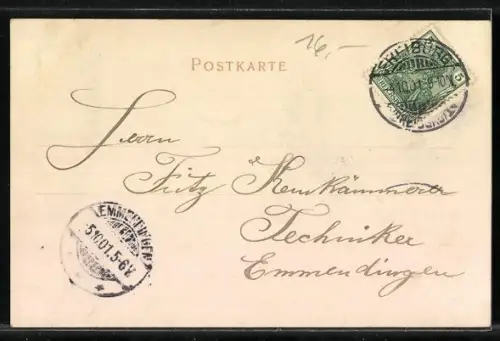 16,-
POSTKARTE
FREIBURG
5
Herrn
Fritz Kernkämmerer
Techniker
Emmendingen
EMMENDINGEN
5.10.01.5-6V.